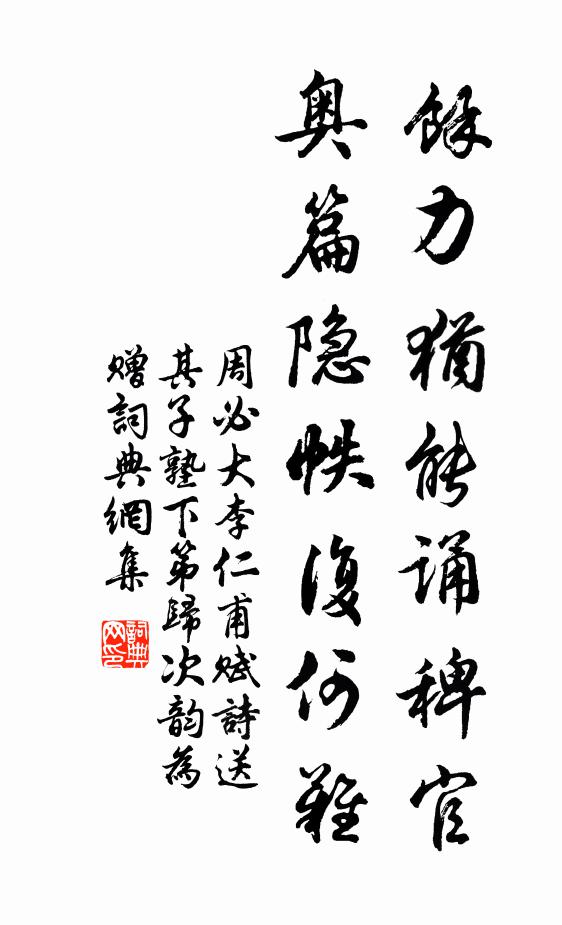 餘力猶能誦稗官
奧篇隐帙復何難
周必大李仁甫賦詩送
其子塾下第歸次韵為
贈詞典網集
詞典网印